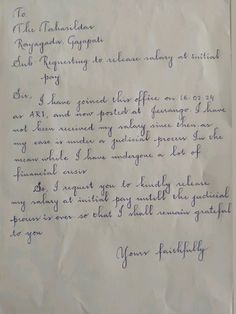 To
The Tahasildar
Rayagada, Gajapati
Sub- Requesting to release salary at initial
pay
Sir,
I have joined this office on 16.02.24
as ARI, and now posted at Jeerango. I have
not been received my salary since then as
my case is under a judicial process. In the
mean while I have undergone a lot of
financial crisis
So, I request you to kindly release
my salary at initial pay untill the judicial
process is over so that I shall remain grateful
to you
Yours faithfully